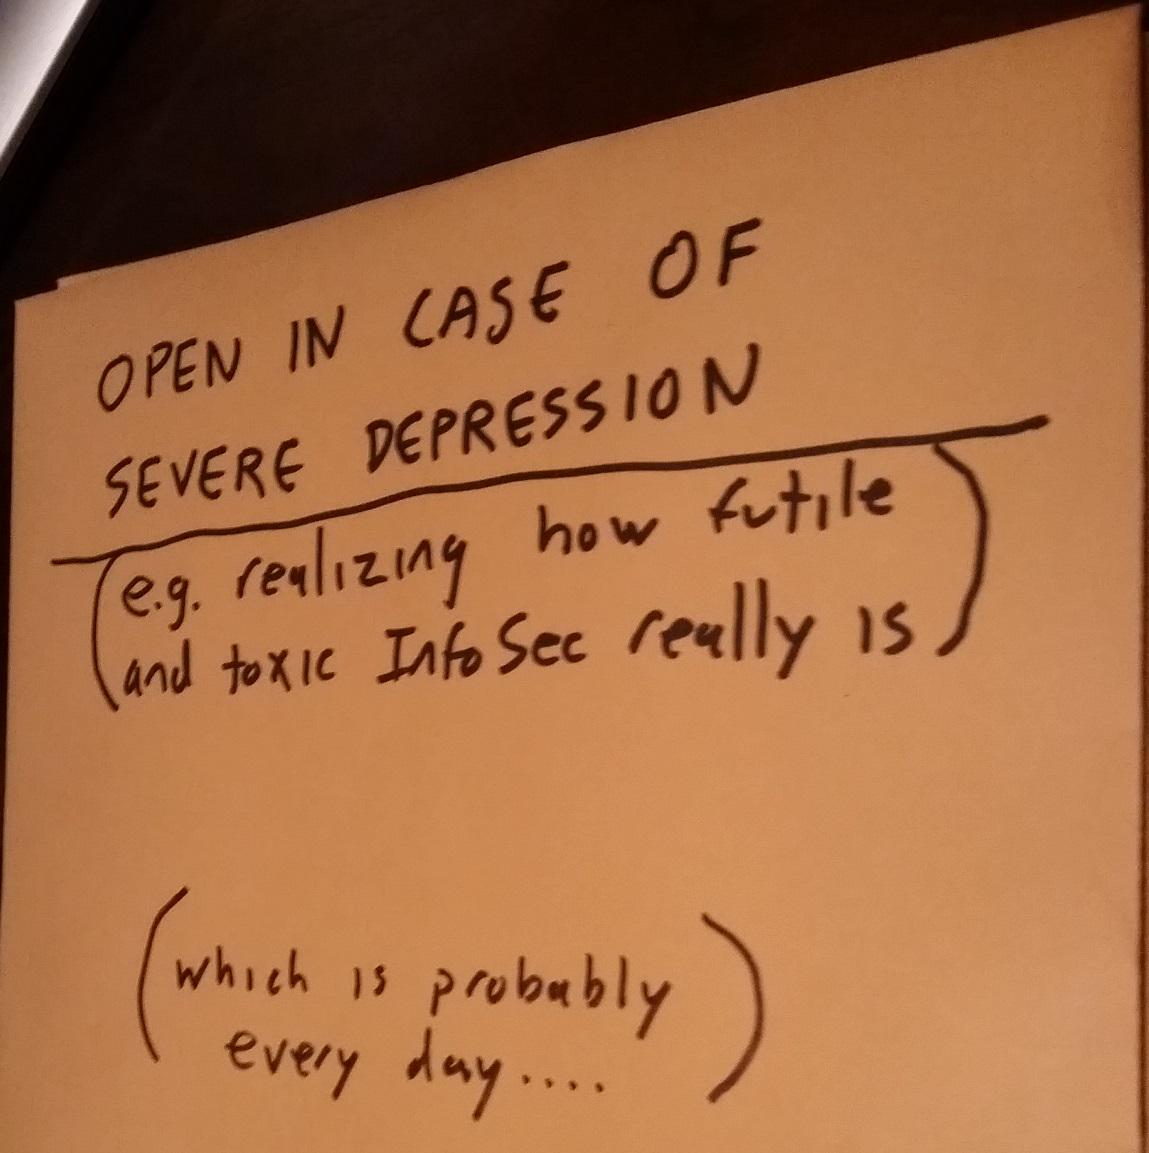 OPEN IN CASE OF
SEVERE DEPRESSION
(e.g. realizing how futile
and toxic InfoSec really is)
(which is probably
every day....)